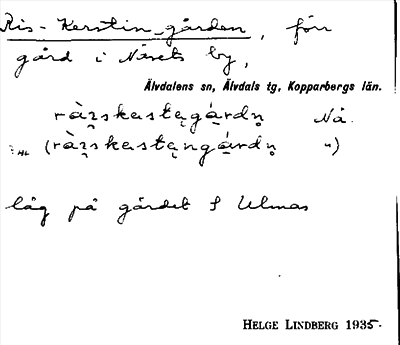 Ris-Kerstin-gården, förr
gård i Nåsets by,
Älvdalens sn, Älvdals tg, Kopparbergs län.
ràɪskęstągárdn̥ Nå.
(ràɪskęstąngárdn̥ ")
låg på gårdet f Ulmas
HELGE LINDBERG 1935.